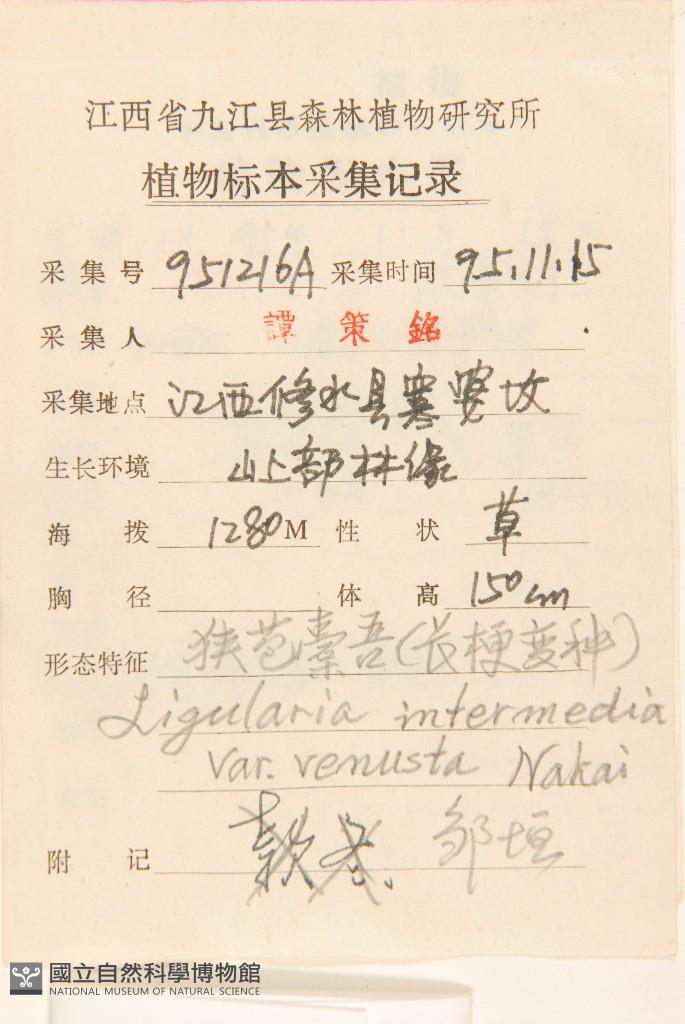 江西省九江县森林植物研究所
植物标本采集记录
采集号 951216A 采集时间 95.11.15
采集人 譚策銘
采集地点 江西修水县寒婆坳
生长环境 山上部林缘
海拨 1280M 性状 草
胸径 体高 150cm
形态特征 狭苞橐吾(长梗变种)
Ligularia intermedia
var. venusta Nakai
附记 款冬. 邹垣
國立自然科學博物館
NATIONAL MUSEUM OF NATURAL SCIENCE